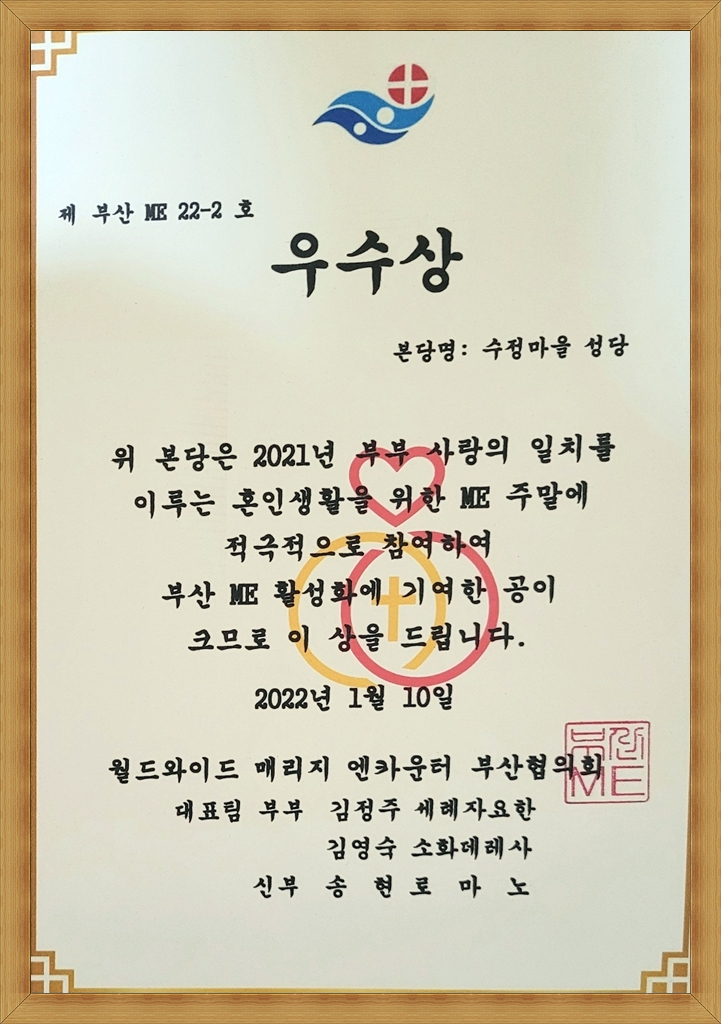 제 부산 ME 22-2 호
우수상
본당명: 수정마을 성당
위 본당은 2021년 부부 사랑의 일치를
이루는 혼인생활을 위한 ME 주말에
적극적으로 참여하여
부산 ME 활성화에 기여한 공이
크므로 이 상을 드립니다.
2022년 1월 10일
월드와이드 매리지 엔카운터 부산협의회
대표팀 부부 김정주 세례자요한
김영숙 소화데레사
신부 송 현 로 마 노
부산
ME